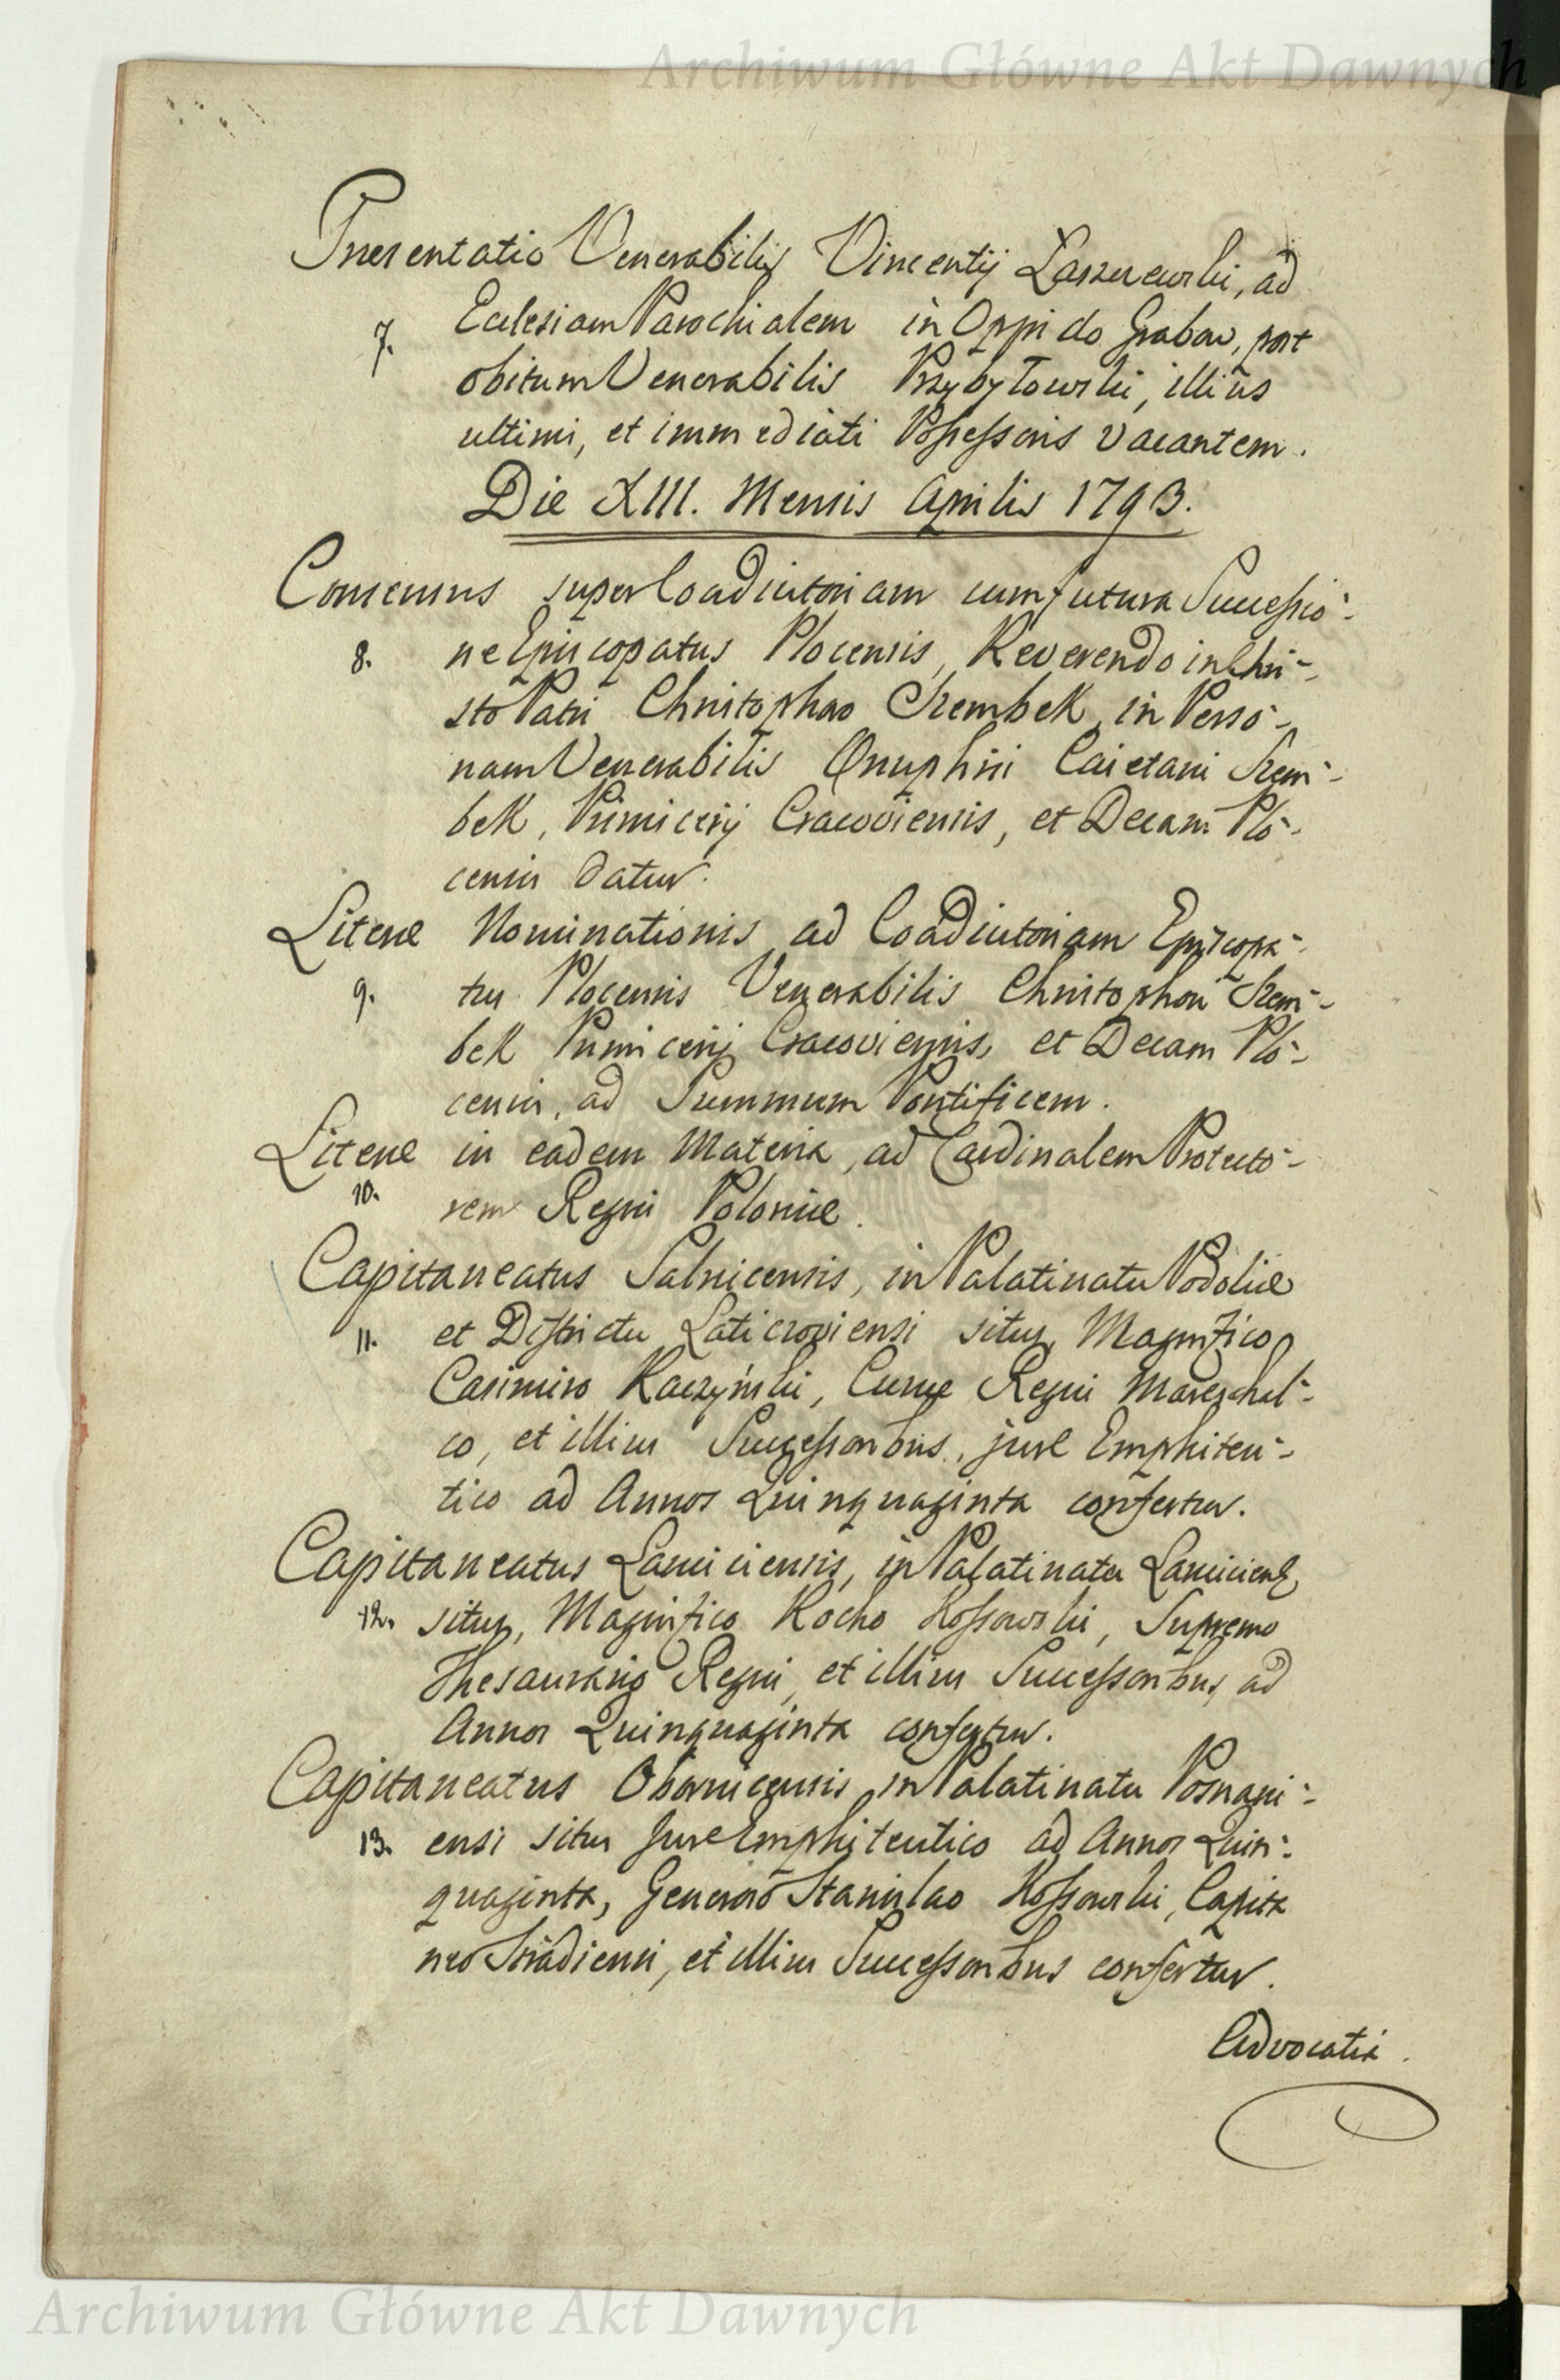 Archiwum Główne Akt Dawnych
Presentatio Venerabilis Vincentij Laszczewski, ad
7. Ecclesiam Parochialem in Oppido Grabow, post
obitum Venerabilis Przybyłowski, illius
ultimi, et immediati Possessoris vacantem.
Die XIII. Mensis Aprilis 1793.
Consensus super Coadiutoriam cum futura Successio-
8. ne Episcopatus Plocensis, Reverendo in Chri-
sto Patri Christophoro Szembek, in Perso-
nam Venerabilis Onuphrii Caietani Szem-
bek, Primicerij Cracoviensis, et Decani Plo-
censis datur.
Literæ Nominationis ad Coadiutoriam Episcopa-
9. tus Plocensis Venerabilis Christophori Szem-
bek Primicerij Cracoviensis, et Decani Plo-
censis, ad Summum Pontificem.
Literæ in eadem Materia, ad Cardinalem Protecto-
10. rem Regni Poloniæ.
Capitaneatus Salnicensis, in Palatinatu Podoliæ
11. et Districtu Laticzoviensi situs, Magnifico
Casimiro Raczyński, Curiæ Regni Mareschal-
co, et illius Successoribus, jure Emphiteu-
tico ad Annos Quinquaginta confertur.
Capitaneatus Lanciciensis, in Palatinatu Lanciciensi
12. situs, Magnifico Rocho Kossowski, Supremo
Thesaurario Regni, et illius Successoribus, ad
Annos Quinquaginta confertur.
Capitaneatus Obornicensis in Palatinatu Posnani-
13. ensi situs Jure Emphiteutico ad Annos Quin-
quaginta, Generoso Stanislao Kossowski, Capita
neo Siradiensi, et illius Successoribus confertur.
Advocatia.
Archiwum Główne Akt Dawnych